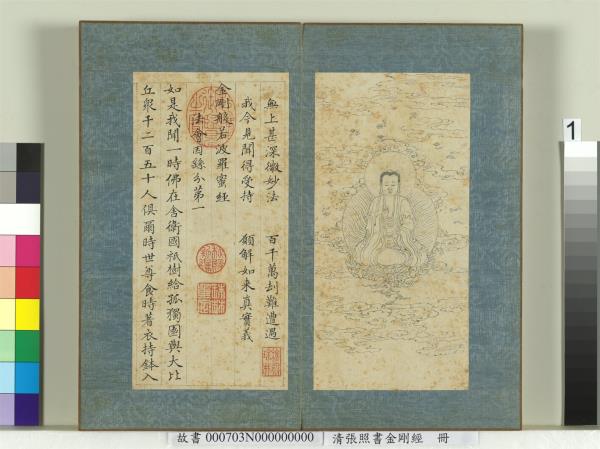 無上甚深微妙法　百千萬刦難遭遇
我今見聞得受持　願解如来真實義
金剛般若波羅蜜經
法會因繇分第一
如是我聞一時佛在舍衛國祇樹給孤獨園與大比
丘衆千二百五十人俱爾時世尊食時著衣持鉢入
1
故書 000703N000000000 清張照書金剛經 冊